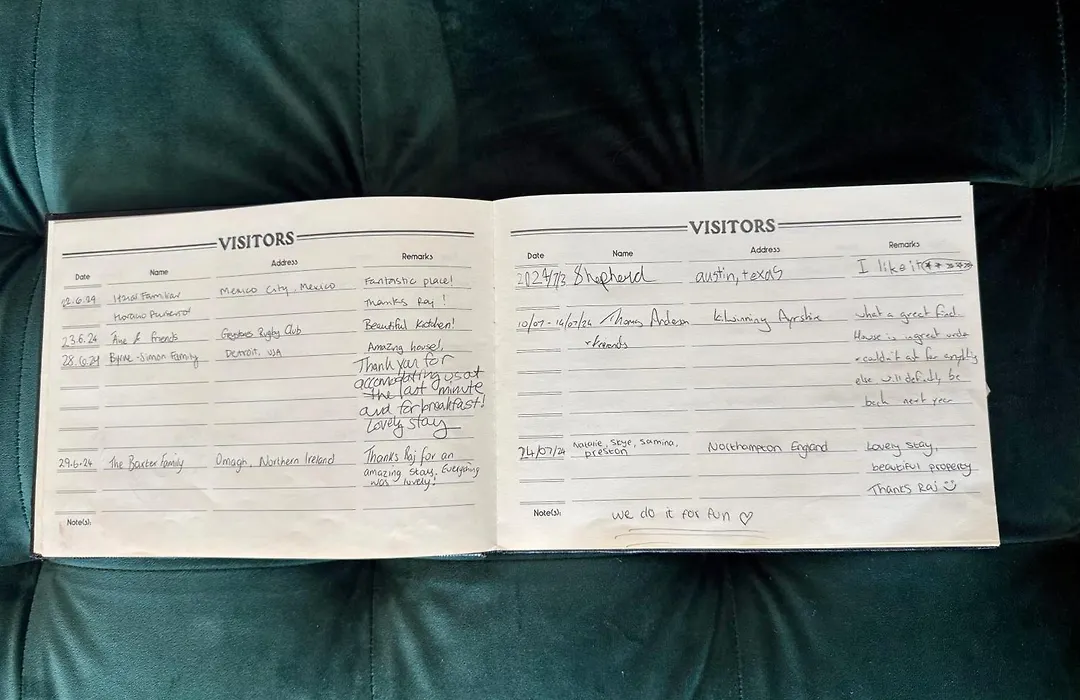 VISITORS
Date Name Address Remarks
12.6.24 Itzal Familiar Mexico City, Mexico Fantastic place!
Horacio Thanks Raj!
23.6.24 Áine & friends Rugby Club Beautiful kitchen!
28.6.24 Byrne-Simon Family Detroit, USA Amazing house!,
Thank you for
accomodating us at
the last minute
and for breakfast!
Lovely stay
29.6.24 The Baxter Family Omagh, Northern Ireland Thanks Raj for an
amazing stay. Everything
was lovely!
Note(s):
VISITORS
Date Name Address Remarks
2024/7/3 Shepherd austin, texas I like it
10/07 - 14/07/24 Thomas Anderson Kilwinning Ayrshire What a great find.
+ friends House is in great order
+ couldn't ask for anything
else will definitely be
back next year
24/07/24 Natalie, Skye, Samina, Northampton England Lovely stay,
preston
beautiful property
Thanks Raj
Note(s): we do it for fun ♡